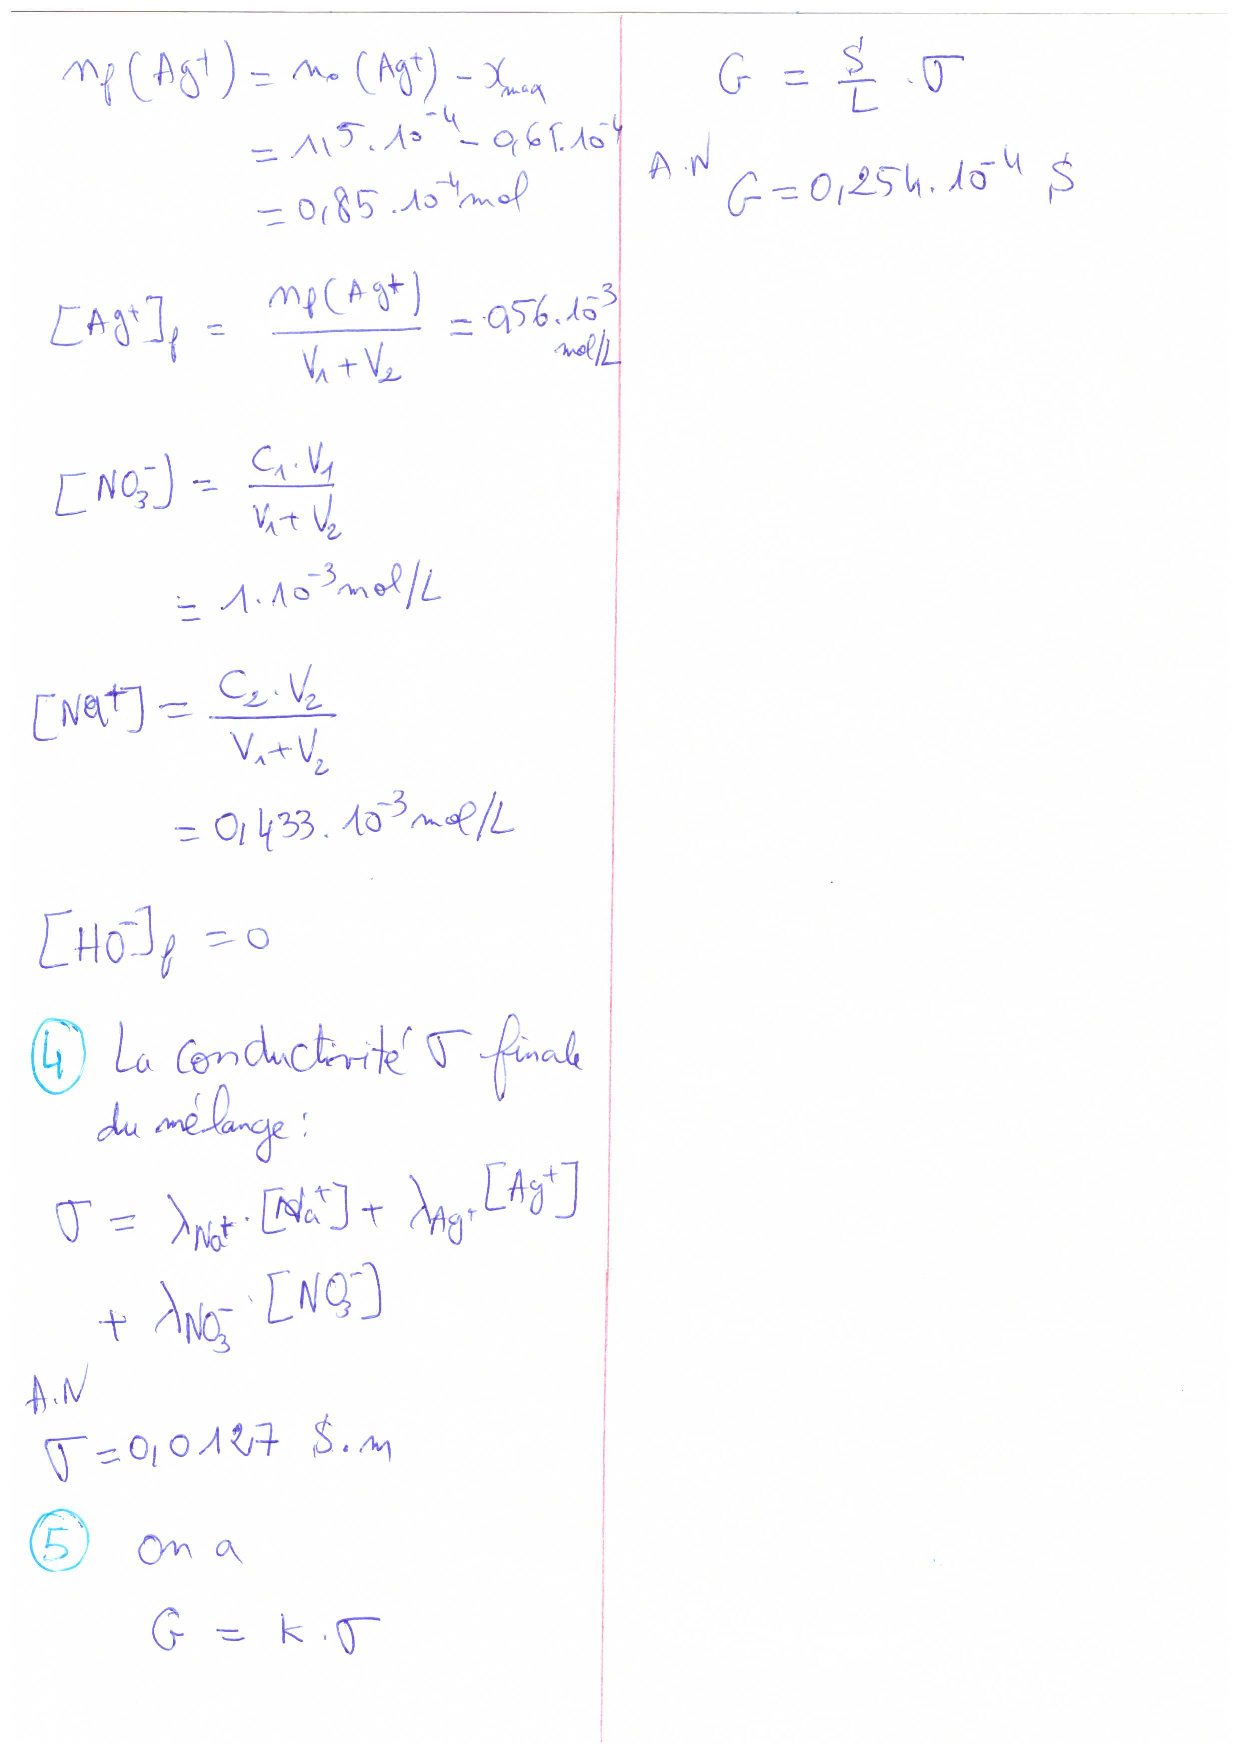 nf(Ag⁺) = n₀(Ag⁺) - xmax
= 1,5.10⁻⁴ - 0,65.10⁻⁴
= 0,85.10⁻⁴ mol
[Ag⁺]f = nf(Ag⁺) / (V₁ + V₂) = 0,56.10⁻³ mol/L
[NO₃⁻] = C₁.V₁ / (V₁ + V₂)
= 1.10⁻³ mol/L
[Na⁺] = C₂.V₂ / (V₁ + V₂)
= 0,433.10⁻³ mol/L
[HO⁻]f = 0
4 La conductivité σ finale
du mélange :
σ = λNa⁺.[Na⁺] + λAg⁺[Ag⁺]
+ λNO₃⁻.[NO₃⁻]
A.N
σ = 0,0127 S.m
5 on a
G = k.σ
G = S/L . σ
A.N G = 0,254.10⁻⁴ S